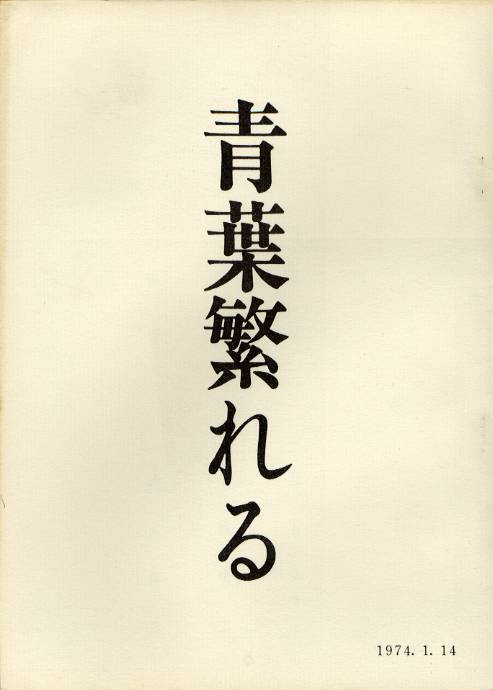 青葉繁れる
1974. 1. 14